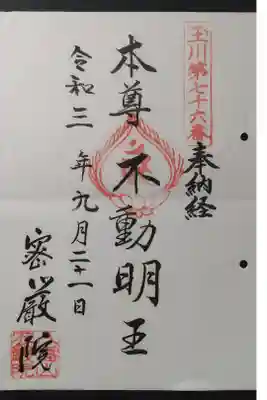 玉川第七十六番
奉納経
本尊不動明王
令和三年九月二十一日
密巌院